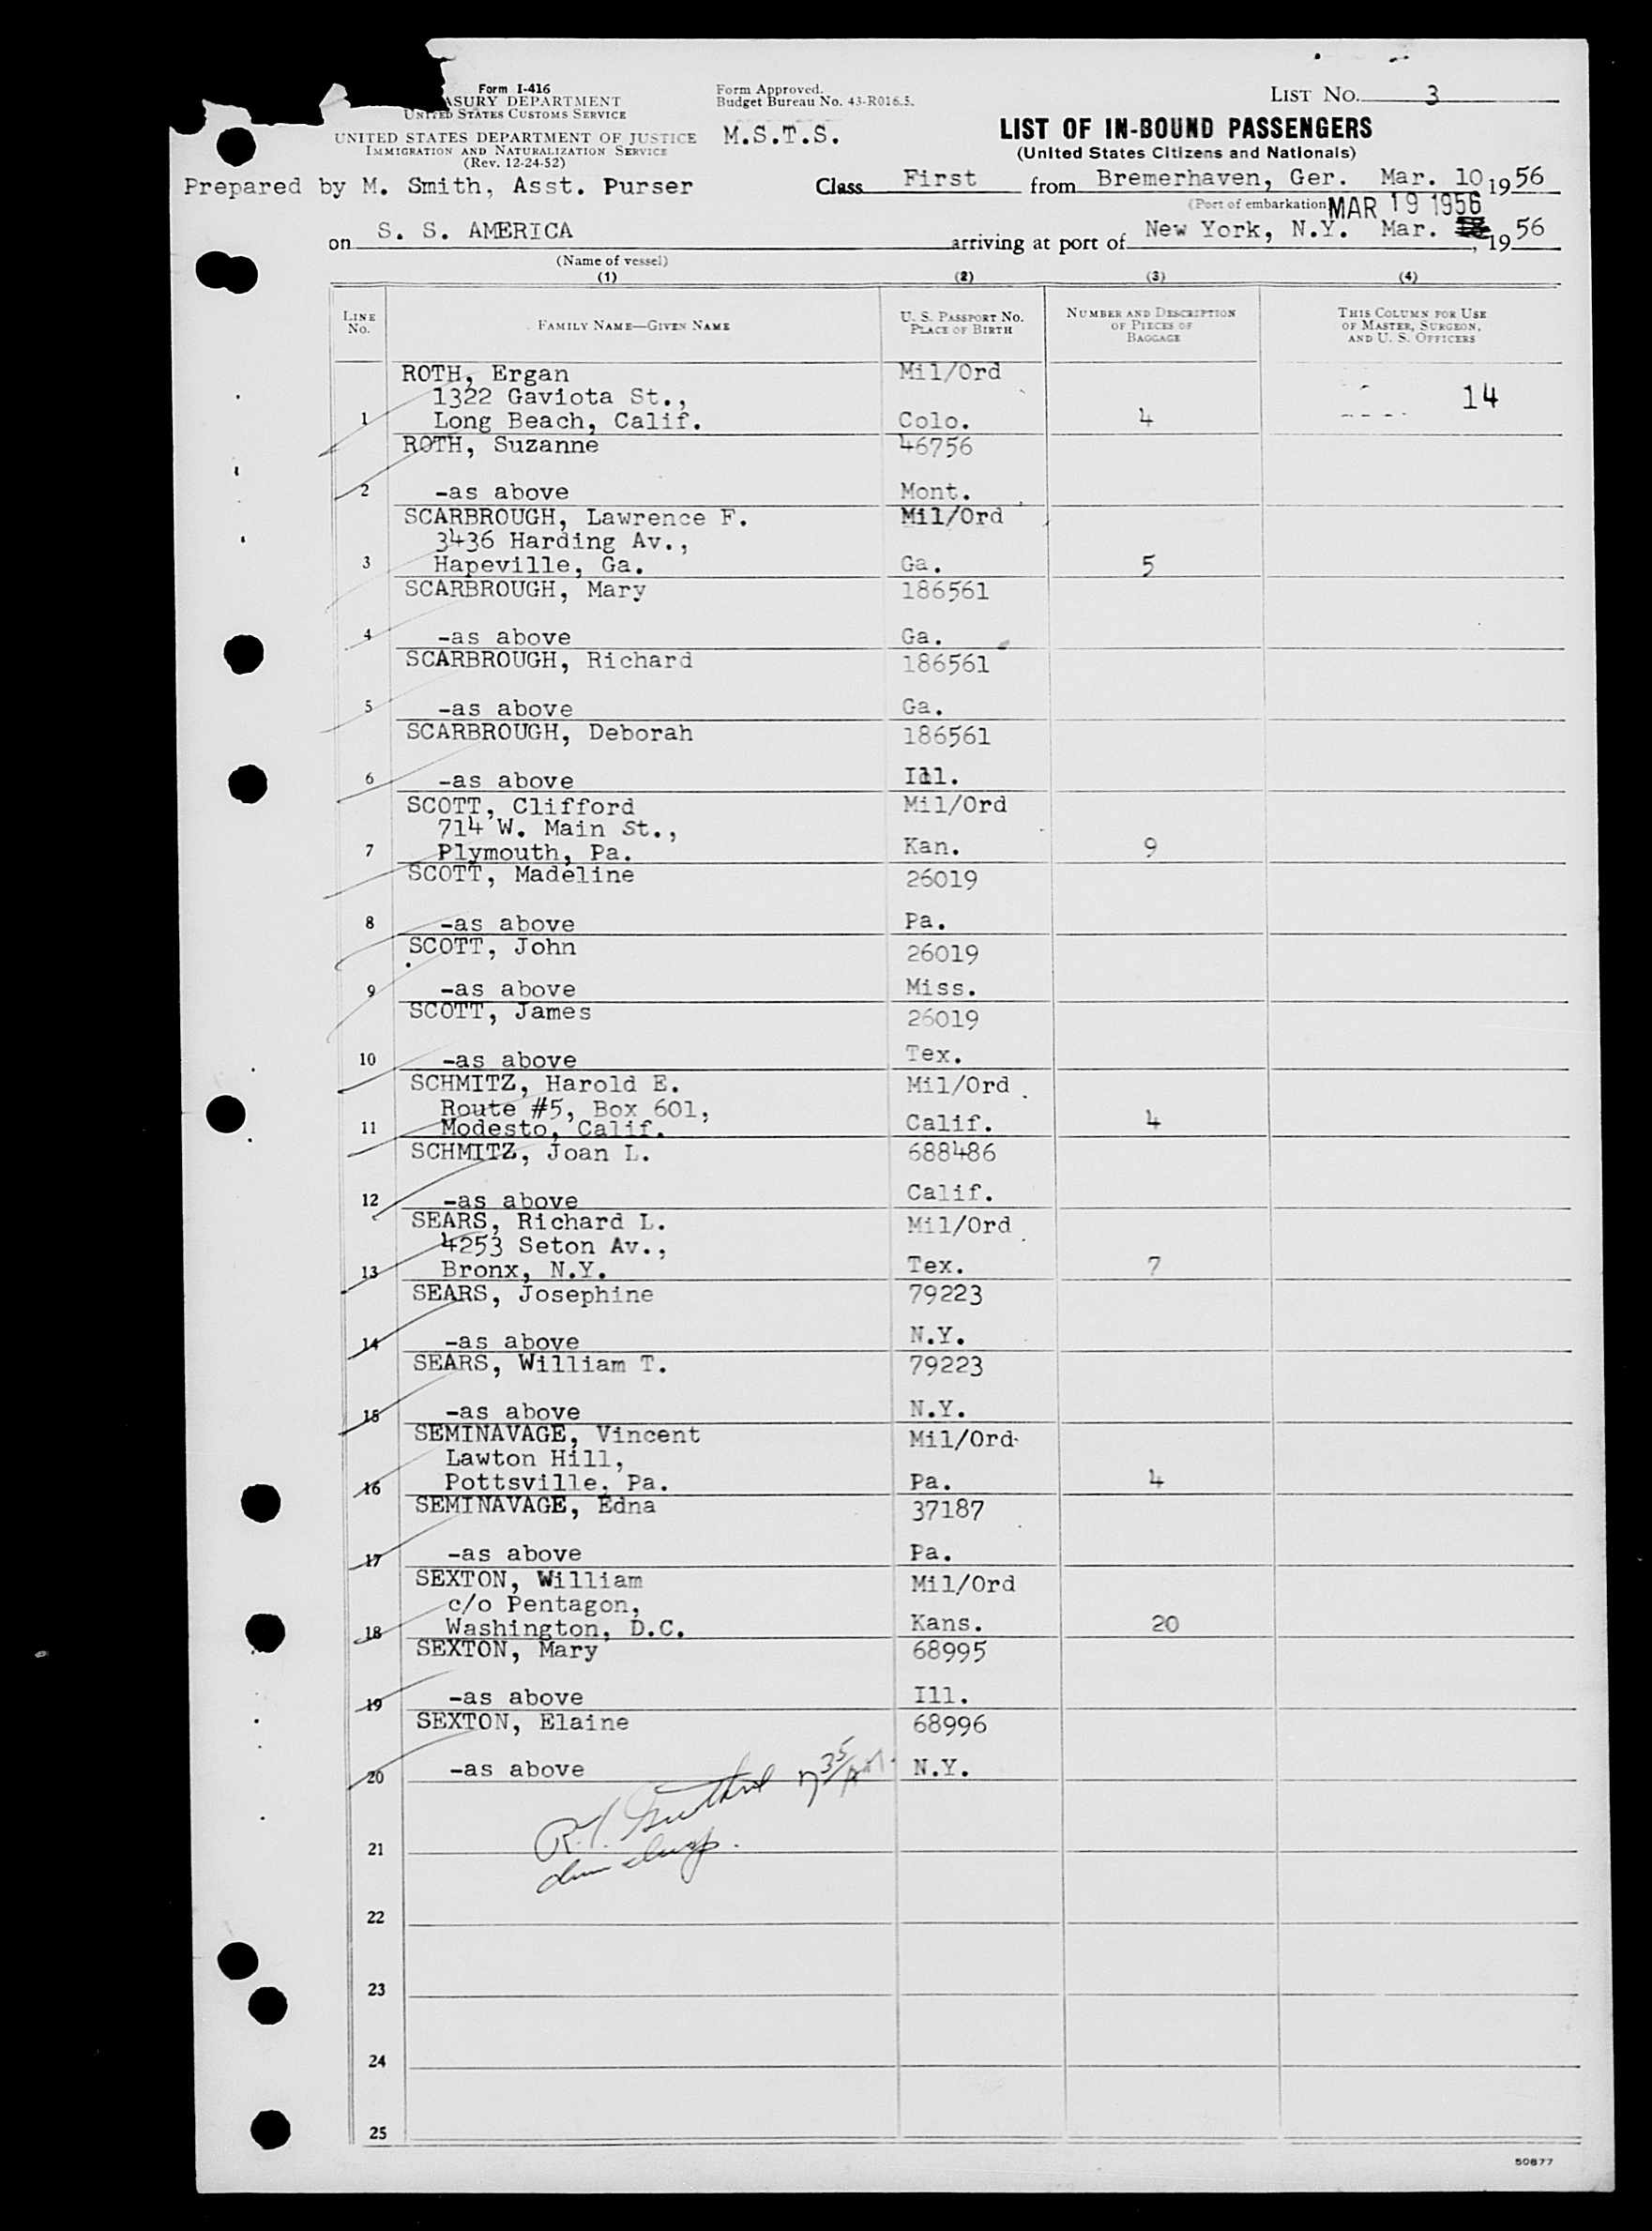 Form I-416
ASURY DEPARTMENT
UNITED STATES CUSTOMS SERVICE
UNITED STATES DEPARTMENT OF JUSTICE
IMMIGRATION AND NATURALIZATION SERVICE
(Rev. 12-24-52)
Form Approved.
Budget Bureau No. 43-R016.5.
M.S.T.S.
LIST NO. 3
LIST OF IN-BOUND PASSENGERS
(United States Citizens and Nationals)
Prepared by M. Smith, Asst. Purser
Class First from Bremerhaven, Ger. Mar. 10 1956
(Port of embarkation)
MAR 19 1956
on S. S. AMERICA arriving at port of New York, N.Y. Mar. , 1956
(Name of vessel)
(1) (2) (3) (4)
LINE No.
FAMILY NAME—GIVEN NAME
U. S. PASSPORT NO.
PLACE OF BIRTH
NUMBER AND DESCRIPTION
OF PIECES OF
BAGGAGE
THIS COLUMN FOR USE
OF MASTER, SURGEON,
AND U. S. OFFICERS
ROTH, Ergan Mil/Ord
1322 Gaviota St., 14
1 Long Beach, Calif. Colo. 4
ROTH, Suzanne 46756
2 -as above Mont.
SCARBROUGH, Lawrence F. Mil/Ord
3436 Harding Av.,
3 Hapeville, Ga. Ga. 5
SCARBROUGH, Mary 186561
4 -as above Ga.
SCARBROUGH, Richard 186561
5 -as above Ga.
SCARBROUGH, Deborah 186561
6 -as above Ill.
SCOTT, Clifford Mil/Ord
714 W. Main St.,
7 Plymouth, Pa. Kan. 9
SCOTT, Madeline 26019
8 -as above Pa.
SCOTT, John 26019
9 -as above Miss.
SCOTT, James 26019
10 -as above Tex.
SCHMITZ, Harold E. Mil/Ord
Route #5, Box 601,
11 Modesto, Calif. Calif. 4
SCHMITZ, Joan L. 688486
12 -as above Calif.
SEARS, Richard L. Mil/Ord
4253 Seton Av.,
13 Bronx, N.Y. Tex. 7
SEARS, Josephine 79223
14 -as above N.Y.
SEARS, William T. 79223
15 -as above N.Y.
SEMINAVAGE, Vincent Mil/Ord
Lawton Hill,
16 Pottsville, Pa. Pa. 4
SEMINAVAGE, Edna 37187
17 -as above Pa.
SEXTON, William Mil/Ord
c/o Pentagon,
18 Washington, D.C. Kans. 20
SEXTON, Mary 68995
19 -as above Ill.
SEXTON, Elaine 68996
20 -as above N.Y.
21
22
23
24
25
50877